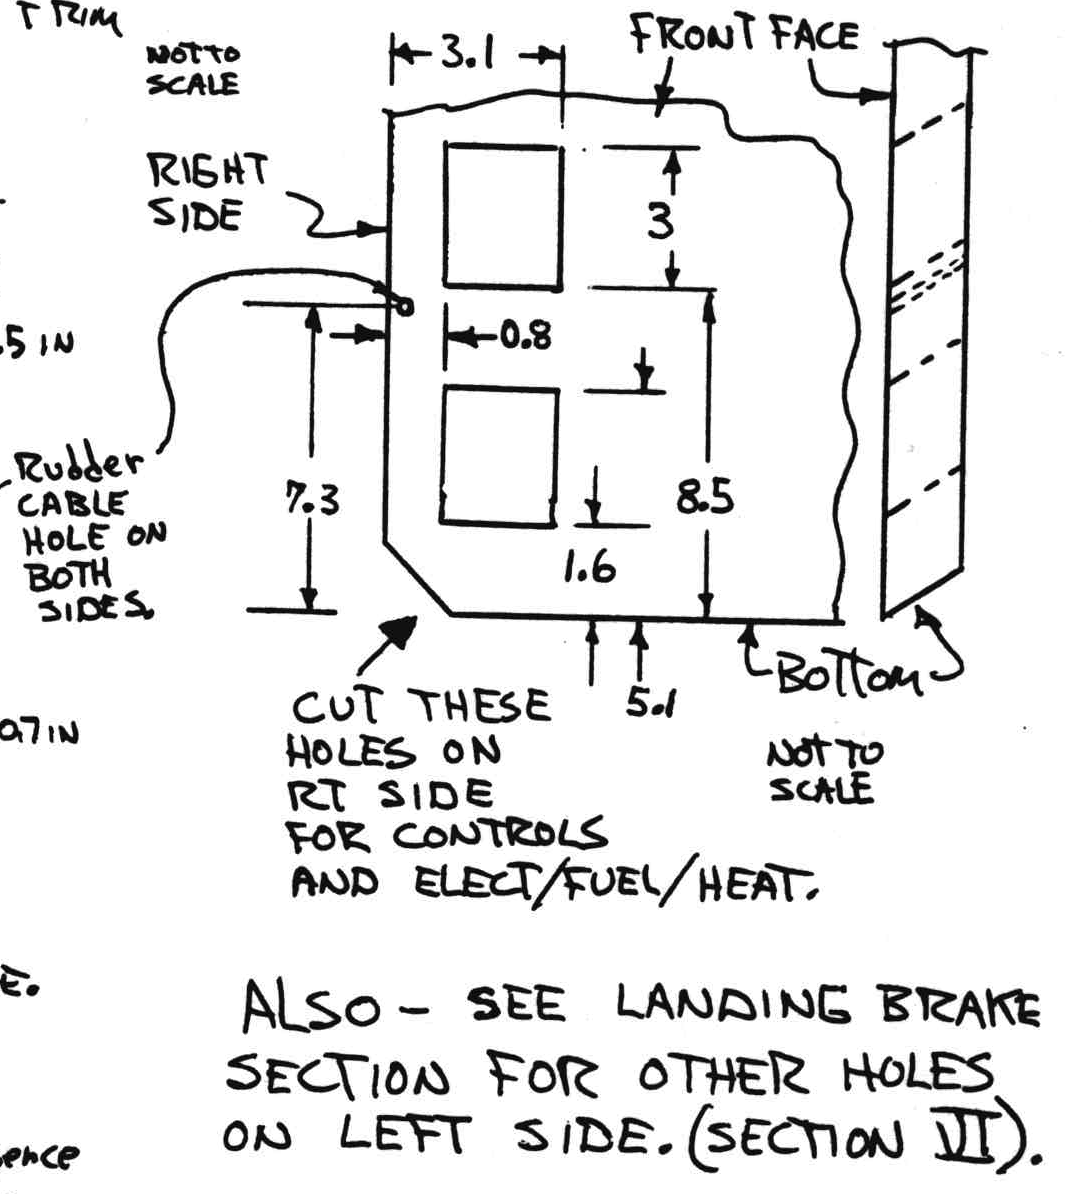 TRIM
NOT TO
SCALE
3.1
FRONT FACE
RIGHT
SIDE
3
.5 IN
0.8
Rudder
CABLE
HOLE ON
BOTH
SIDES.
7.3
8.5
1.6
5.1
Bottom
0.7 IN
CUT THESE
HOLES ON
RT SIDE
FOR CONTROLS
AND ELECT/FUEL/HEAT.
NOT TO
SCALE
E.
ALSO - SEE LANDING BRAKE
SECTION FOR OTHER HOLES
ON LEFT SIDE. (SECTION VI).
ence